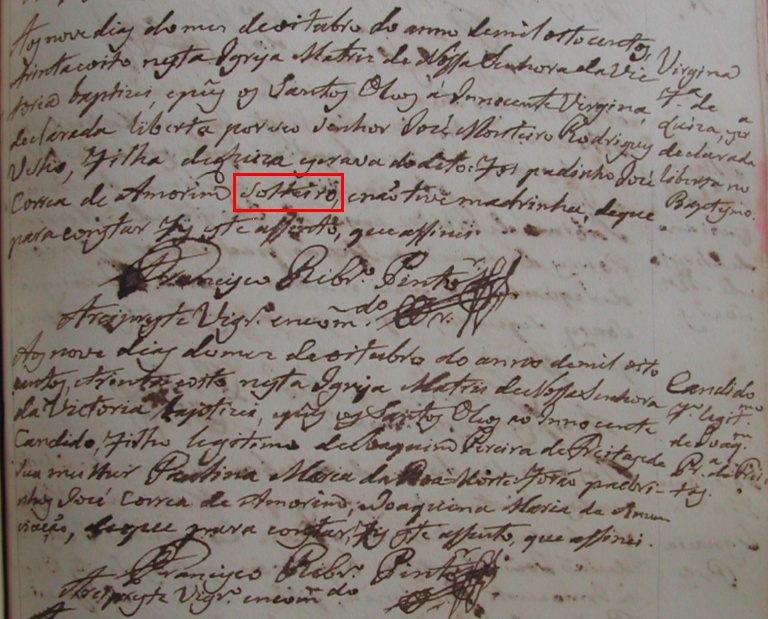 Aos nove dias do mes de oitubro do anno de mil oito centos,
trinta e oito nesta Igreja Matriz de Nossa Senhora da Vic
toria baptizei, e puz os Santos Oleos a Innocente Virgina,
declarada liberta por seo senhor José Monteiro Rodrigues
Velho, Filha de escrava do dito: Foi padrinho José
Correa de Amorim solteiro, e não teve madrinha, de que
para constar fiz este assento, que assinei.
Francisco Ribr.º Pinto
Arcipreste Vigr.º encom.do
Virgina
F.ª de
declarada
liberta no
Baptysmo.
Aos nove dias do mes de oitubro do anno de mil oito
centos, e trinta e oito nesta Igreja Matriz de Nossa Senhora
da Victoria baptizei, e puz os Santos Oleos ao Innocente
Candido, Filho legitimo de Joaquim Pereira de Freitas, e de
sua mulher Paulina Maria da Boa Morte: Forão padri-
nhos José Correa de Amorim, e Joaquina Maria de Anun
ciação, de que para constar fiz este assento, que assinei.
Francisco Ribr.º Pinto
Arcipreste Vigr.º encom.do
Candido
F.º legit.mo
de Joaq.m
Pr.ª de Frei-
tas.